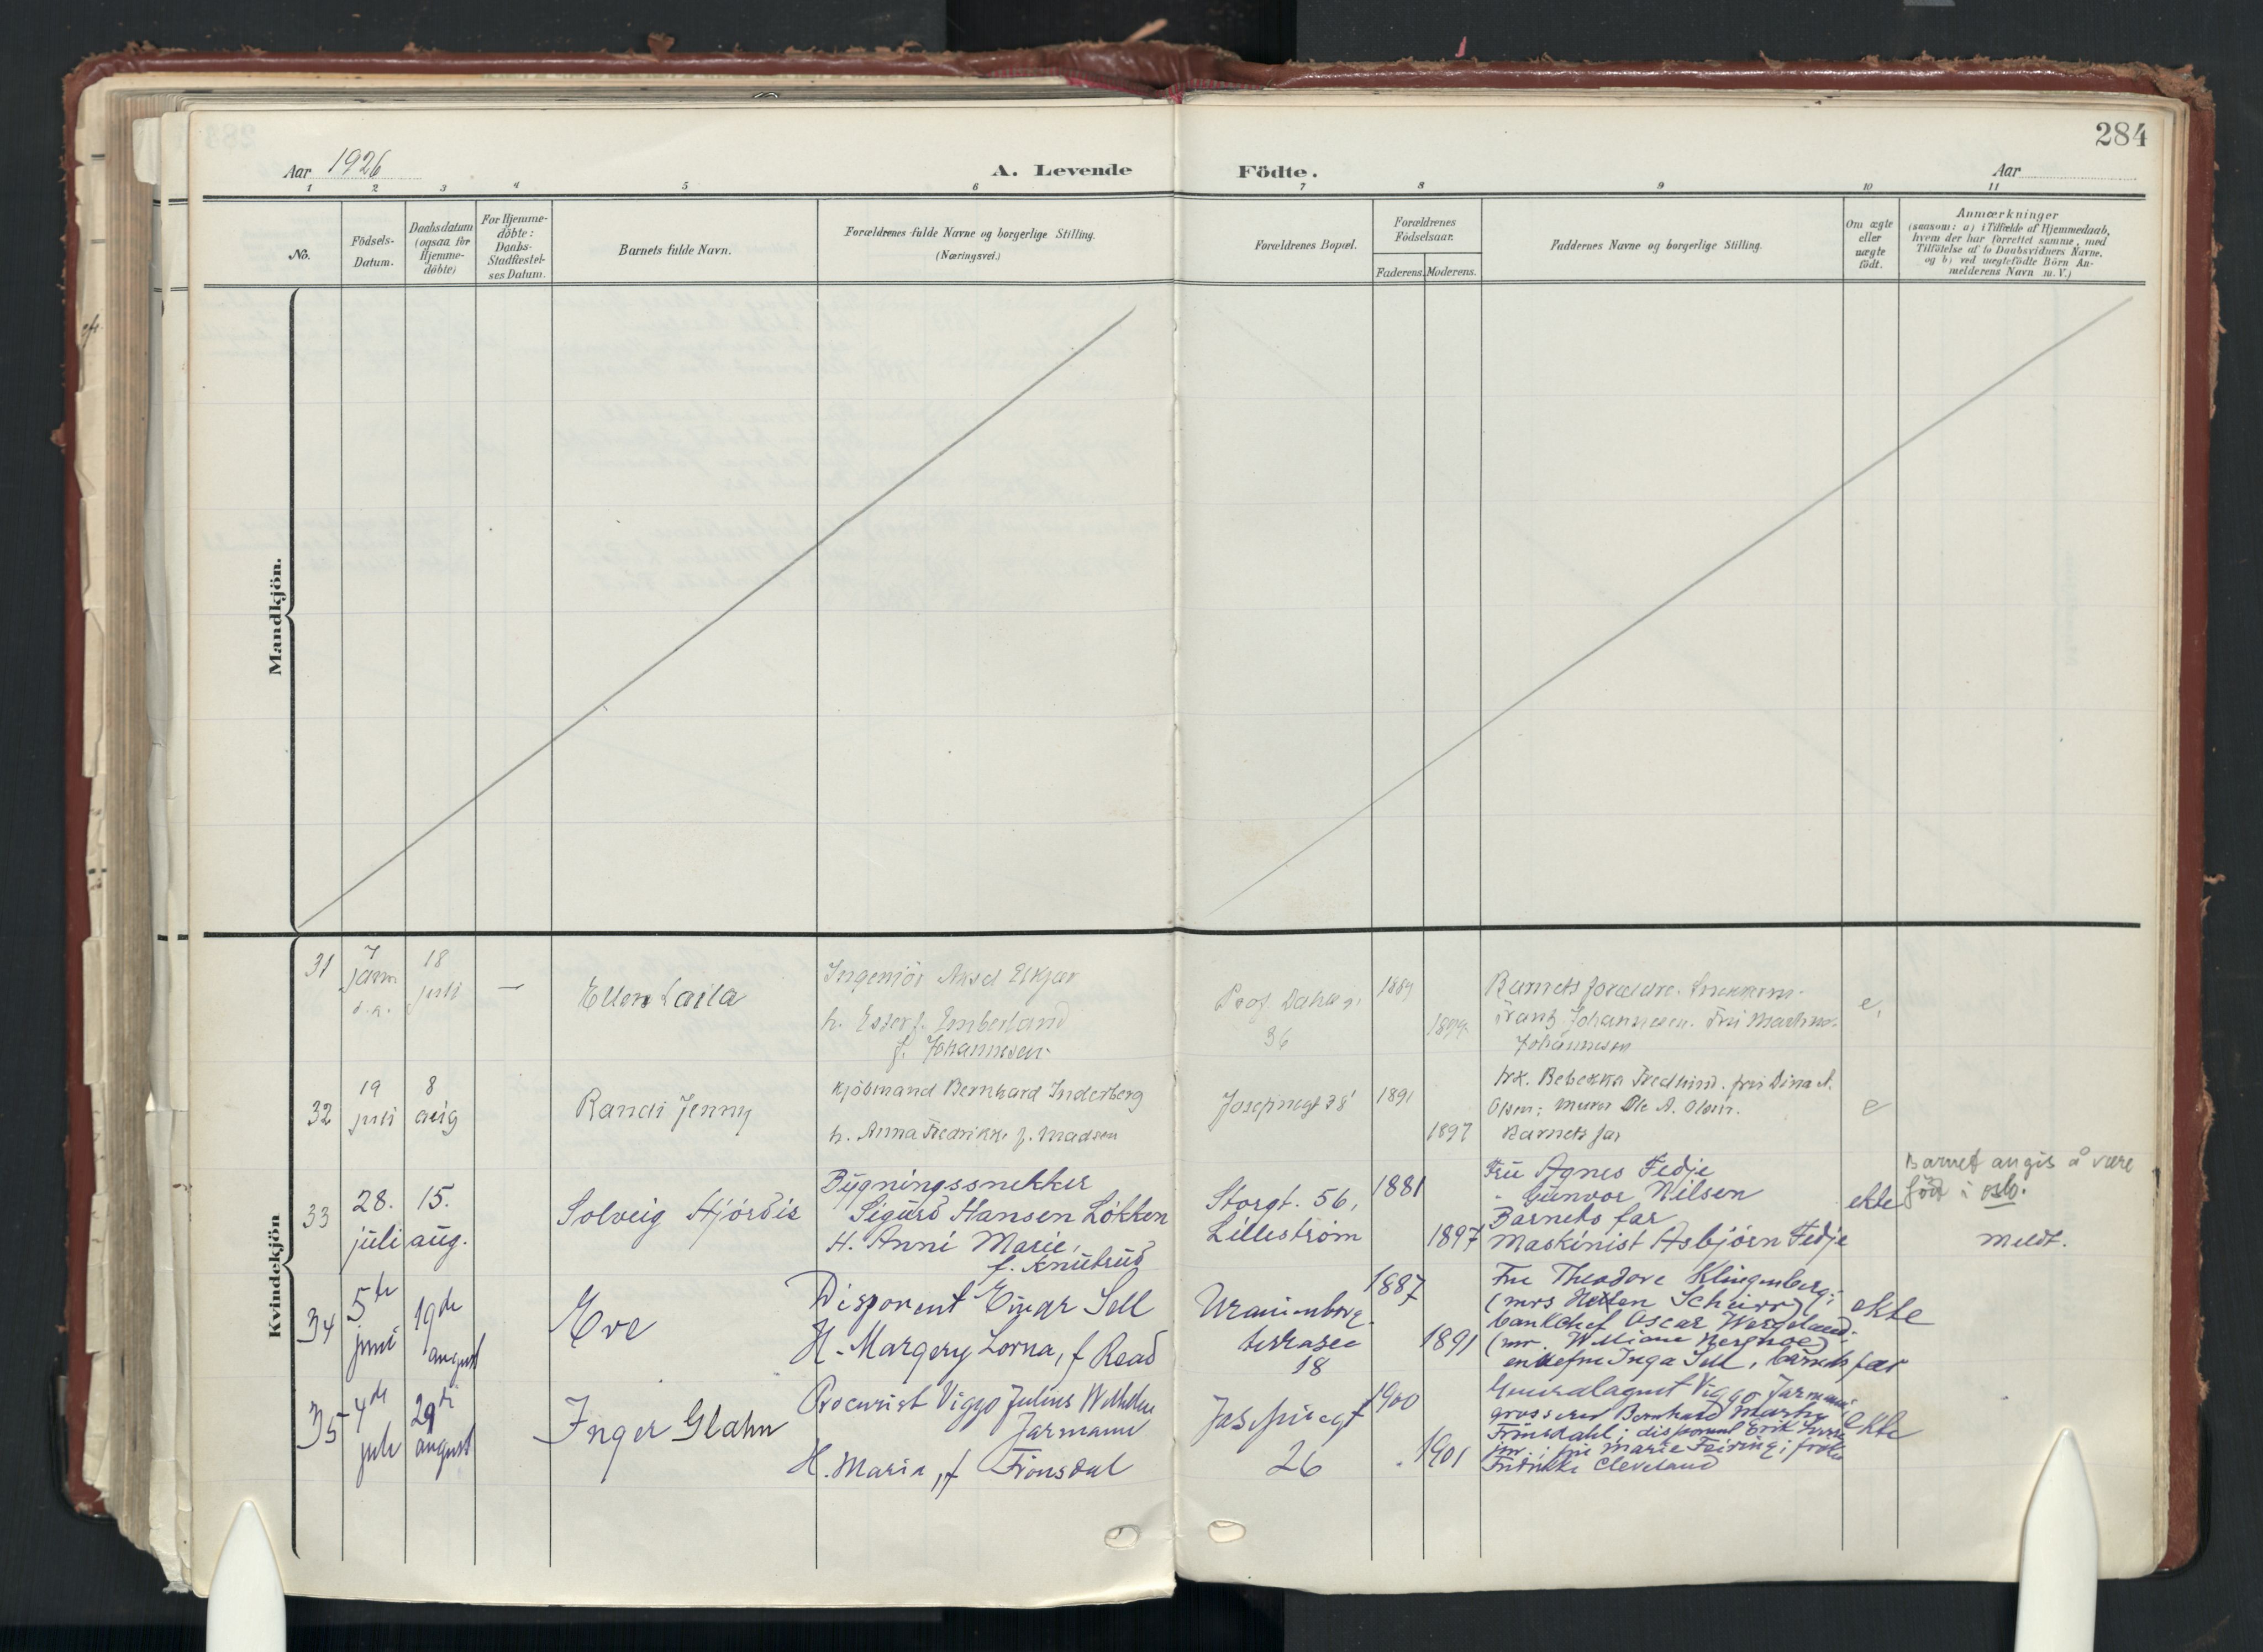 284
Aar 1926
A. Levende Födte.
Aar
1 2 3 4 5 6 7 8 9 10 11
No.
Födsels-
Datum.
Daabsdatum
(ogsaa for
Hjemme-
döbte)
For Hjemme-
döbte:
Daabs-
Stadfæstel-
ses Datum.
Barnets fulde Navn.
Forældrenes fulde Navne og borgerlige Stilling.
(Næringsvei.)
Forældrenes Bopæl.
Forældrenes
Födselsaar.
Faderens. Moderens.
Faddernes Navne og borgerlige Stilling.
Om ægte
eller
uægte
födt.
Anmærkninger
(saasom: a) i Tilfælde af Hjemmedaab,
hvem der har forrettet samme, med
Tilföielse af to Daabsvidners Navne,
og b) ved uægtefödte Börn An-
melderens Navn m. V.)
Mandkjön.
Kvindekjön
31
7
jan
18
juli
—
Ellen Laila
Ingeniör
h. Ester f. Emberland
f. Johannesen
Prof. Dahls
36
1889
Barnets forældre.
Frantz Johannesen. Fru
Johannesen
e.
32
19
juli
8
aug
Randi Jenny
Kjöbmand Bernhard Inderberg
h. Anna Fredrikke f. Madsen
Josefinegt 28
1891
1897
Rebekka Fredlund. fru Dina A.
Olsen; murer Ole A. Olsen.
Barnets far
e
33
28.
juli
15.
aug.
Solveig Hjördis
Bygningssnekker
Sigurd Hansen Lökken
H. Anni Marie,
f. Knutsrud
Storgt. 56,
Lilleström
1881
1897
Fru Agnes Fedje
" Gunvor Nilsen
Barnets far
Maskinist Asbjörn Fedje
ekte
Barnet angis å være
föd i Oslo.
meldt.
34
5te
juni
19de
august
Eve
Disponent Einar Sell
H. Margery Lorna, f Read
Uranienborg
terrasse
18
1887
1891
Fru Theodore Klingenberg;
(mrs
bankchef Oscar Wergeland.
(mr.
enkefru Inga Sell, barnets far
ekte
35
4de
juli
29de
august
Inger Glahn
Procurist Viggo Julius Wilhelm
Jarmann
H. Maria, f Frönsdal
Josefinegt
26
1900
1901
Generalagent Viggo Jarmann;
grosserer Bernhard
Frönsdahl; disponent Erik
jnr.; fru Marie Feiring; fröken
Fredrikke Cleveland
ekte